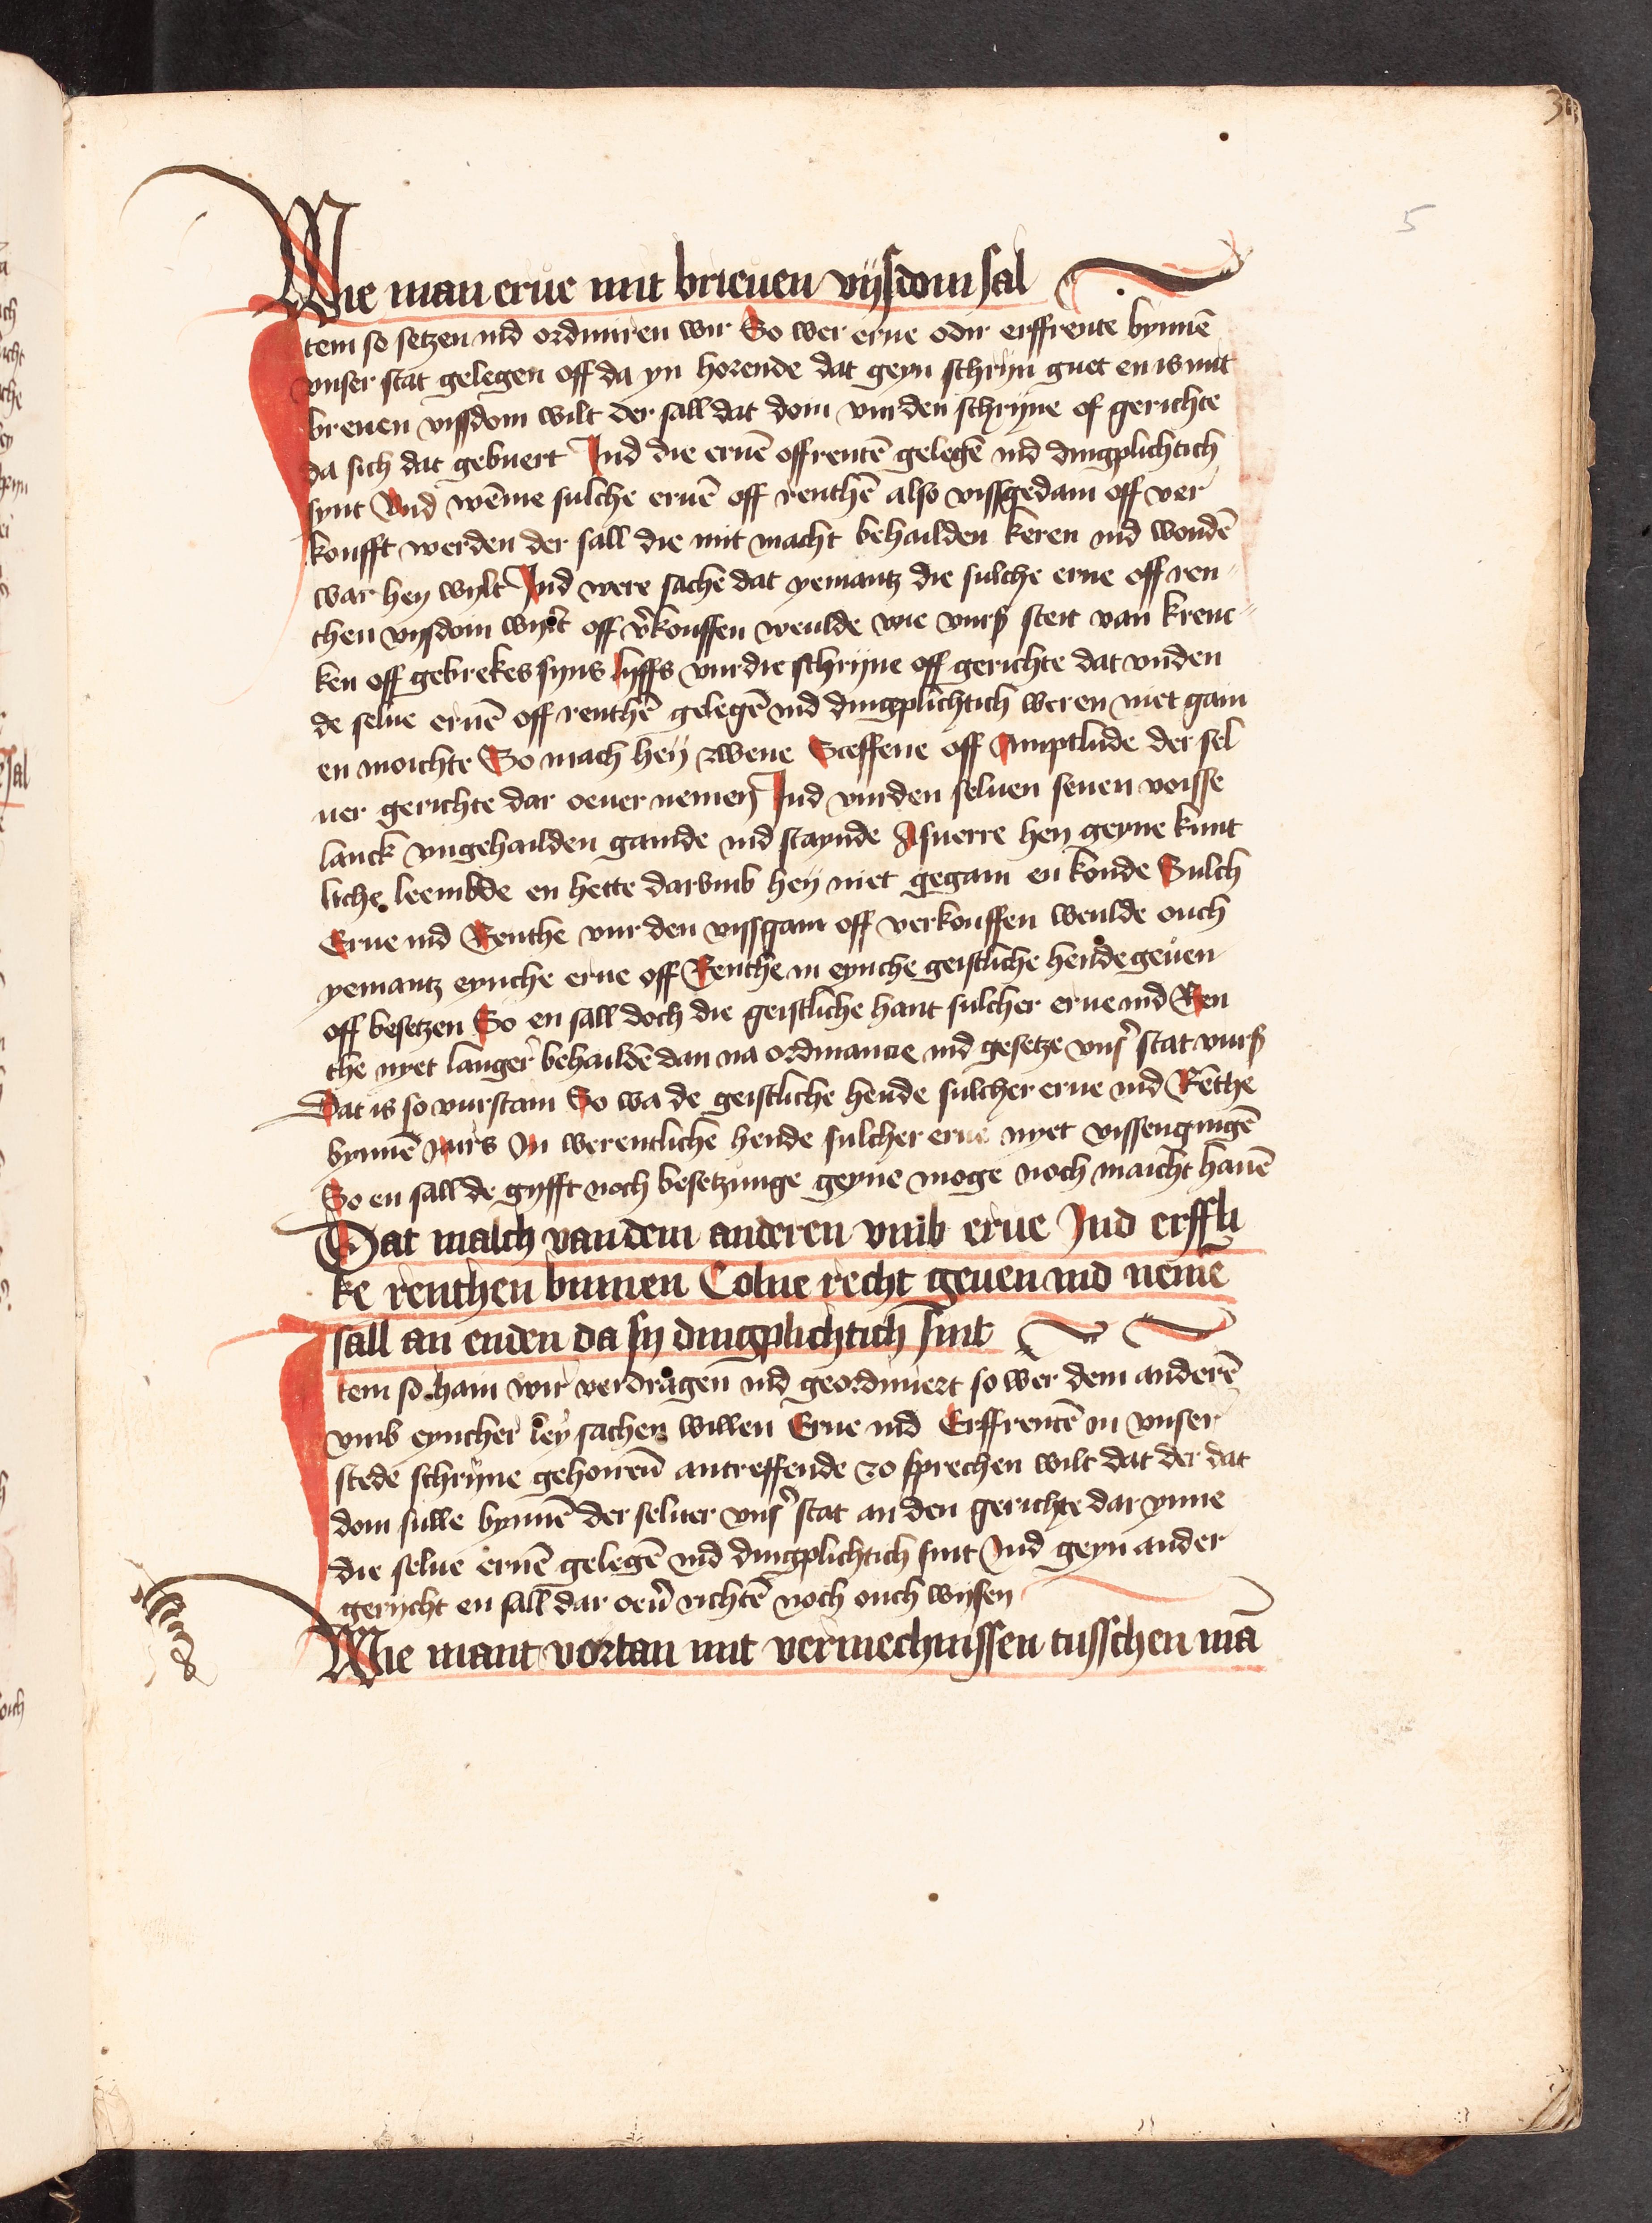 5
Wie man erue mit brieuen vyſdom ſal
Item ſo ſetzen ind ordiniren wir So wer erue odir erffrente bynnē
vnſer ſtat gelegen off da yn horende dat geyn ſchrijn guet en is mit
breuen viſſdom wilt der ſall dat dom vur den ſchrijne of gerichte
da ſich dat gebuert Ind die eruē off rentē gelegē ind dingplichtich
ſynt Vnd wēme ſulche eruē off renthē alſo viſſgedain off ver
koufft werden der ſall die mit macht behailden keren ind wendē
war hey wylt Ind were ſache dat yemantz die ſulche erue off ren-
then vyſdom wylt off v̉kouffen weulde wie vurß ſteit van krenc-
ken off gebrekes ſyns lyffs vur die ſchrijne off gerichte dat vnden
de ſelue eruē off renthē gelegē ind dingplichtich weren niet gain
en moichte So mach hey zwene Scheffene off Amptlude der ſel
uer gerichte dar oeuer nemen Ind vur den ſeluen ſeuen voiſſe
lanck vngehailden gainde ind ſtaynde Aſuerre hey geyne kunt
liche leembde en hette darvmb hey niet gegain en konde Sulch
Erue ind Renthe vur den viſſgain off verkouffen weulde ouch
yemantz eynche erue off Renthe in eynche geiſtliche hende geuen
off beſetzen So en ſall doch die geiſtliche hant ſulcher erue ind Ren
the nyet langer behaildē dan na ordinancie ind geſetze vnſ̉ ſtat vurß
Dat is ſo vurſtain So wa de geiſtliche hende ſulcher erue ind Rēthe
bynnē Jairs In werentliche hende ſulcher erue nyet viſſengingē
So en ſall de gyfft noch beſetzunge geyne moge noch maicht hauē
Dat malch van dem anderen vmb erue Ind erffli
ke renthen binnen Colne recht geuen ind nemē
ſall an enden da ſy dingplichtich ſint
Item ſo hain wir verdragen ind geordiniert ſo wer dem anderē
vmb eyncher ley ſachen willen Erue ind Erffrentē in vnſer
ſtede ſchrijne gehoirēn antreffende zo ſprechen wilt dat der dat
dom ſulle bynnē der ſeluer vnſ̉ ſtat an den gerichte dar ynne
die ſelue eruē gelegē ind dingplichtich ſint Ind geyn ander
gerycht en ſall dar oeủ richtē noch ouch wijſen
Wie mant vortan mit vermechniſſen tuſſchen mā